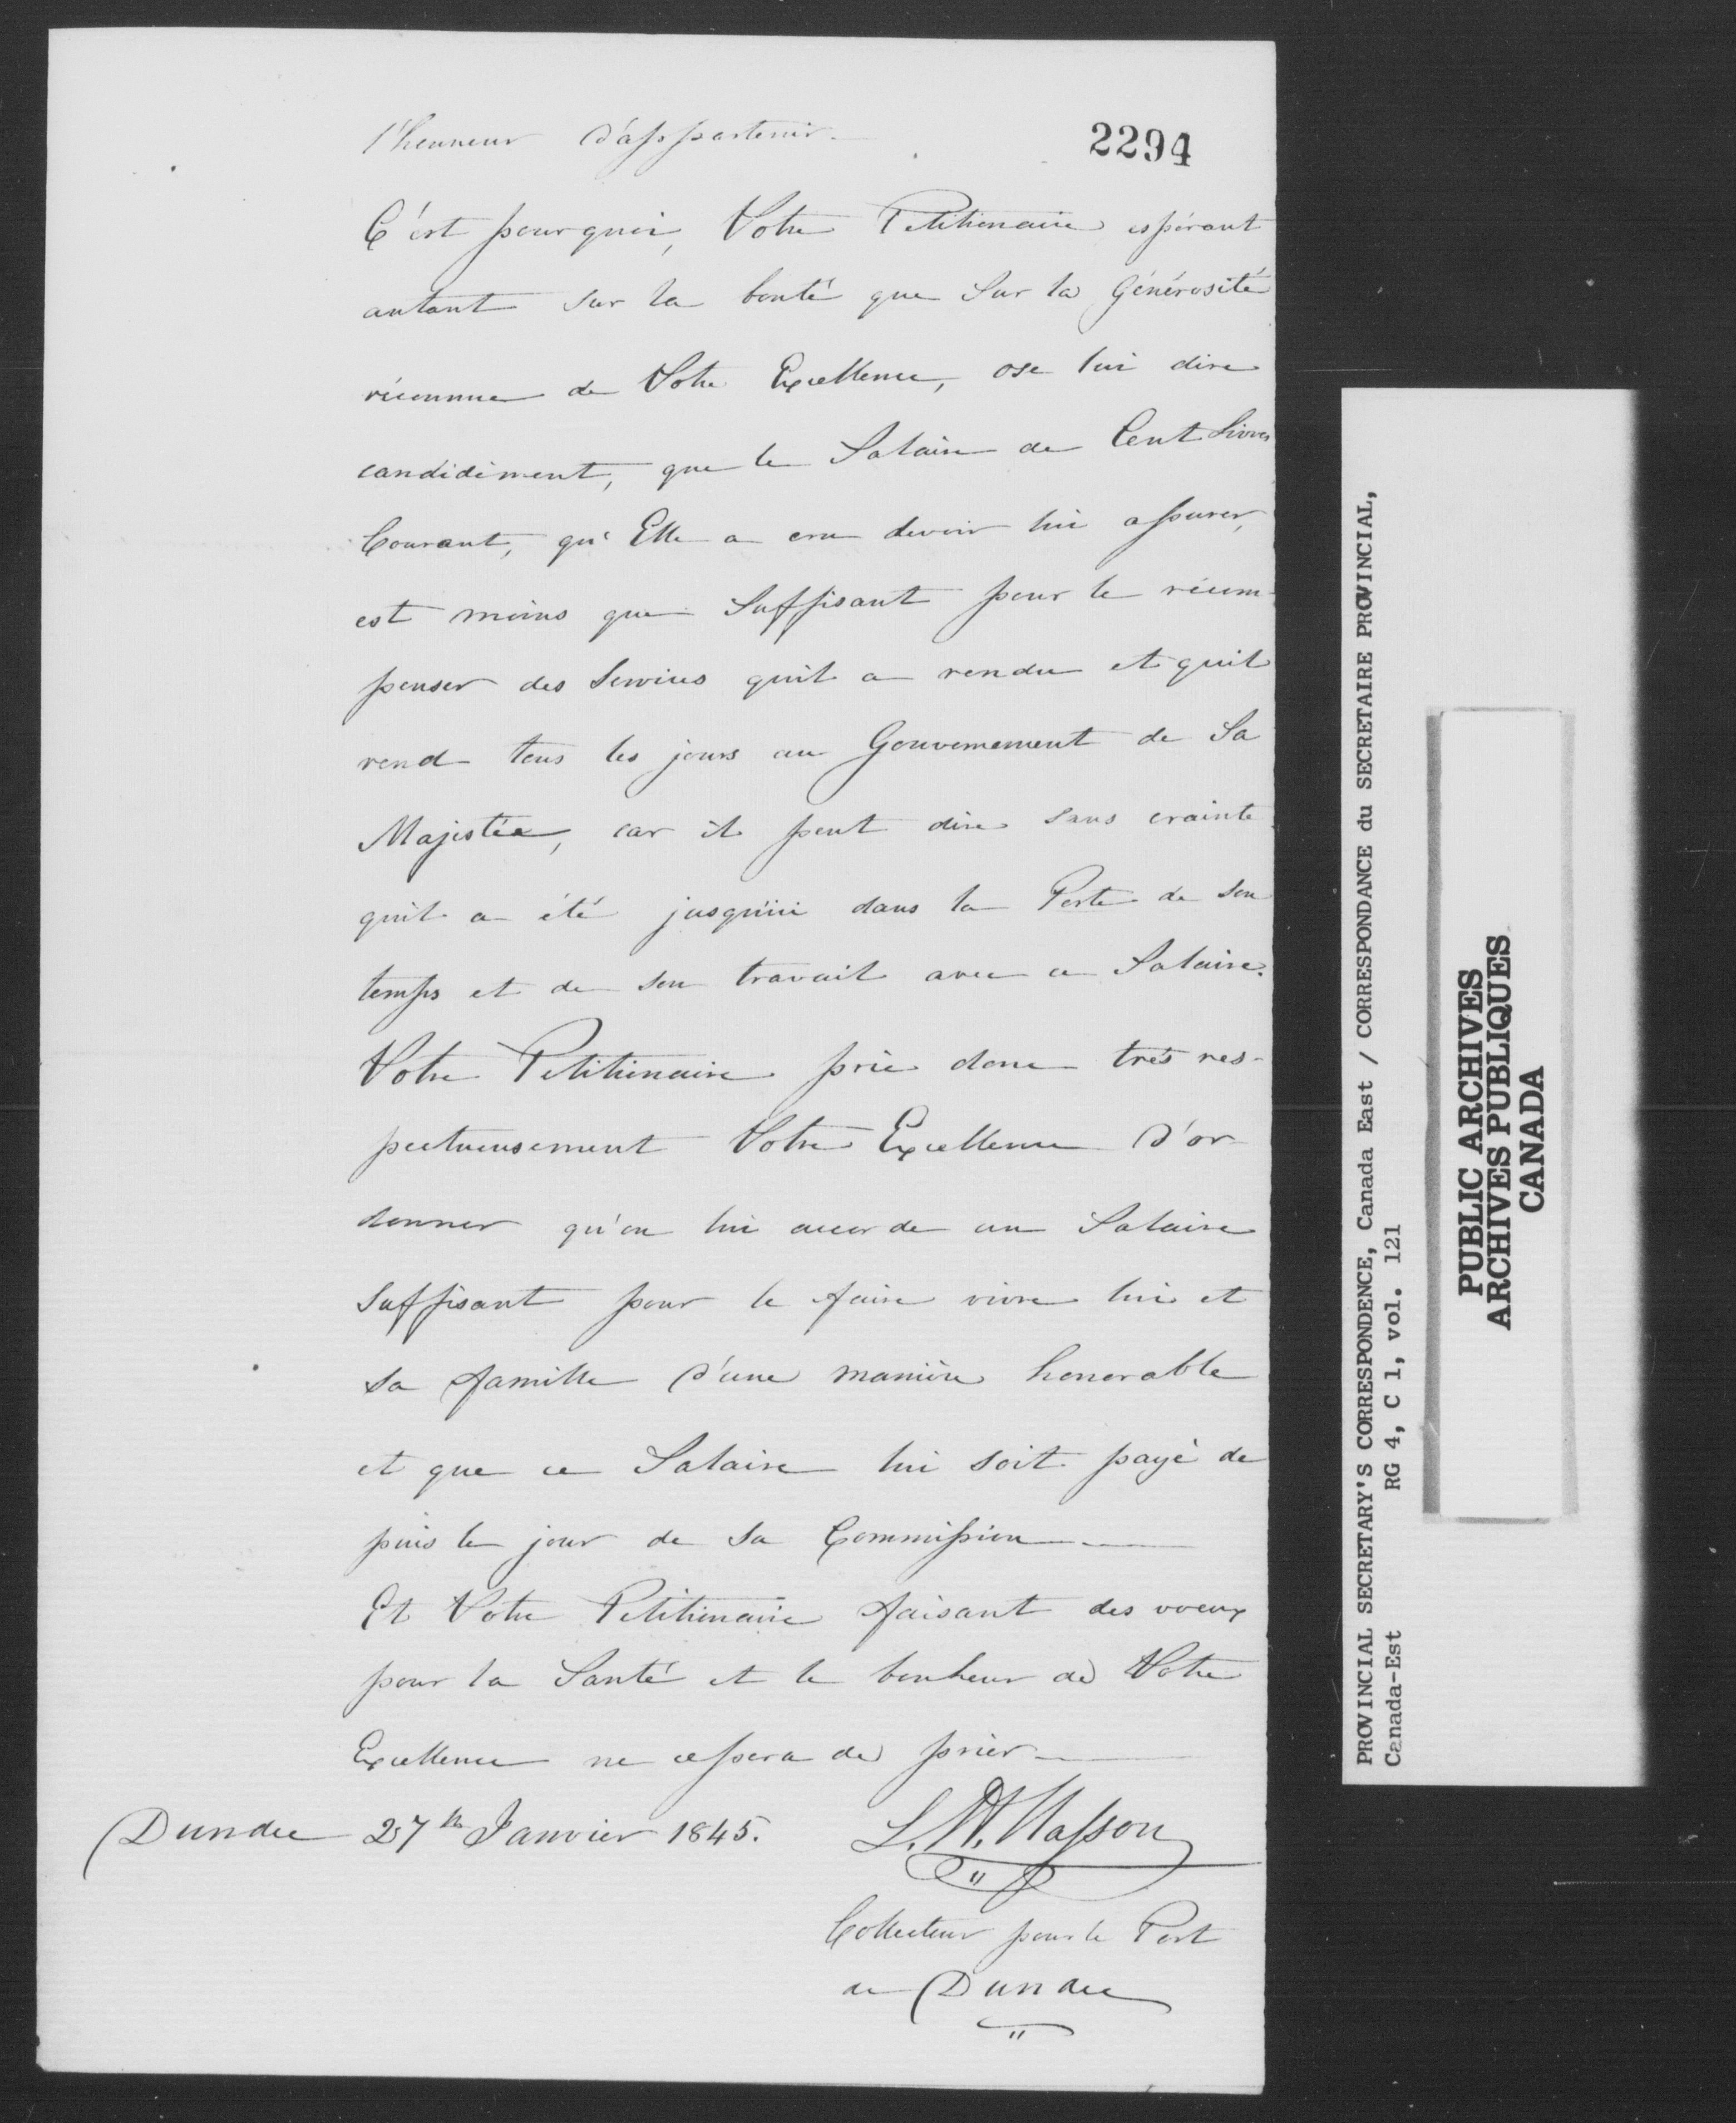 l'honneur d'appartenir.
2294
C'est pourquoi, Votre Petitionaire espérant
autant sur la bonté que sur la Générosité
réconnue de Votre Excellence, ose lui dire
candidément, que le Salaire de Cent Livres
Courant, qu'Elle a cru devoir lui assurer,
est moins que Suffisant pour le récom-
penser des Services qu'il a rendu et qu'il
rend tous les jours au Gouvernement de Sa
Majestée, car il peut dire sans crainte
qu'il a été jusqu'ici dans la Perte de son
temps et de son travail avec ce Salaire.
Votre Petitionaire prie donc très res-
pectueusement Votre Excellence d'or-
donner qu'on lui accorde un Salaire
Suffisant pour le faire vivre lui et
sa famille d'une manière honorable
et que ce Salaire lui soit payé de
puis le jour de sa Commission
Et Votre Petitionaire faisant des voeux
pour la Santé et le bonheur de Votre
Excellence ne cessera de prier
Dundee 27th Janvier 1845.
L. W. Masson
Collecteur pour le Port
de Dundee
PROVINCIAL SECRETARY'S CORRESPONDENCE, Canada East / CORRESPONDANCE du SECRETAIRE PROVINCIAL,
Canada-Est RG 4, C 1, vol. 121
PUBLIC ARCHIVES
ARCHIVES PUBLIQUES
CANADA